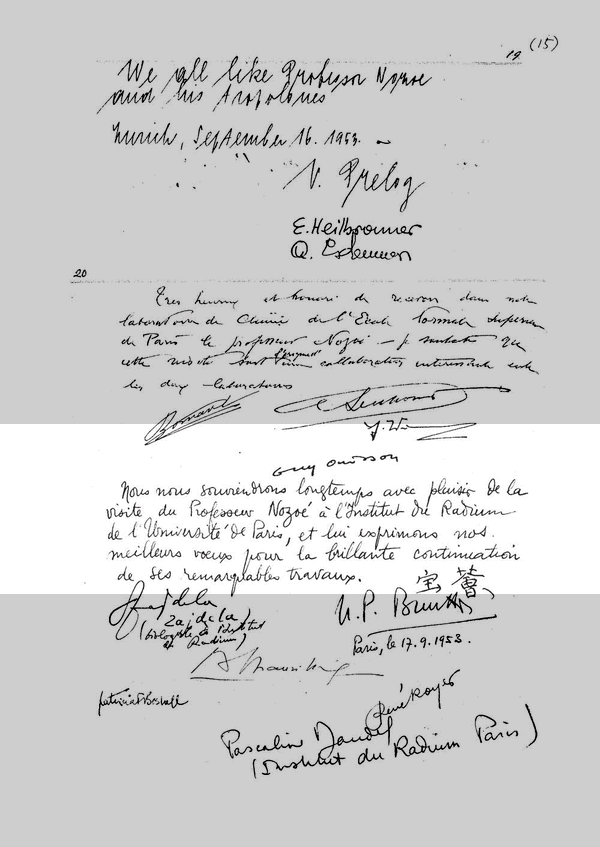 19 (15)
We all like Professor Nozoe
and his tropolones
Zurich, September 16. 1953.
V. Prelog
E. Heilbronner
20
Très heureux et honoré de recevoir dans notre
laboratoire de Chimie de l'Ecole Normale Supérieure
de Paris le professeur Nozoé – je souhaite que
cette visite soit collaboration intéressante entre
les deux laboratoires
Guy Ourisson
Nous nous souviendrons longtemps avec plaisir de la
visite du Professeur Nozoé à l'Institut du Radium
de l'Université de Paris, et lui exprimons nos
meilleurs voeux pour la brillante continuation
de ses remarquables travaux.
Zajdela
(biologiste à l'Institut
du Radium)
N.P. Buu
Paris, le 17.9.1953.
René Royer
Pascaline Daudel
(Institut du Radium Paris)